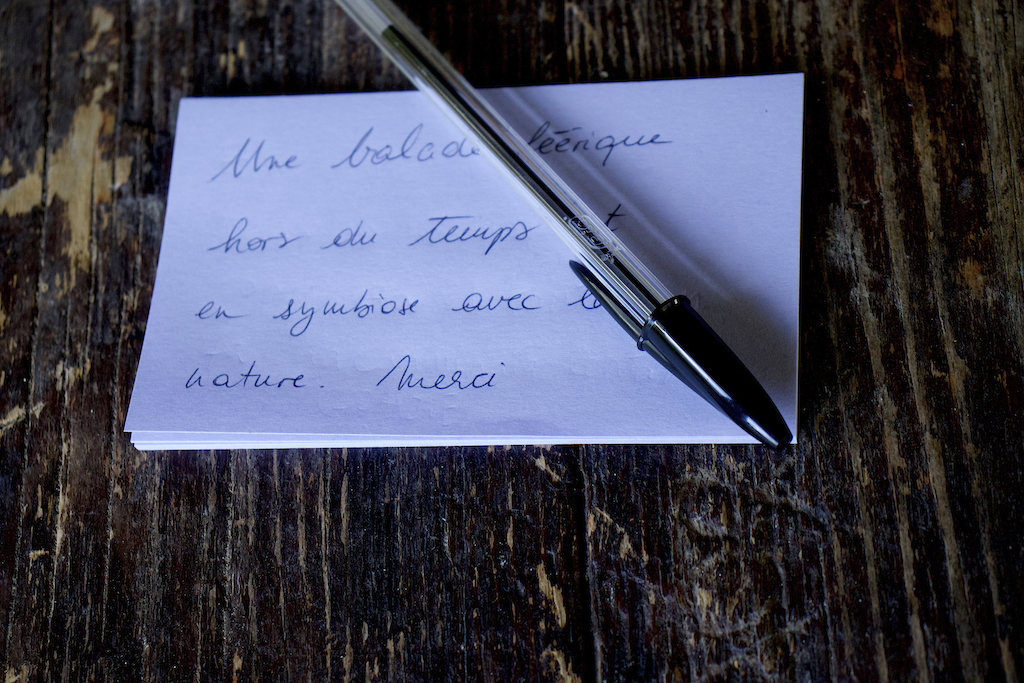 Une balade féérique
hors du temps et
en symbiose avec la
nature. Merci